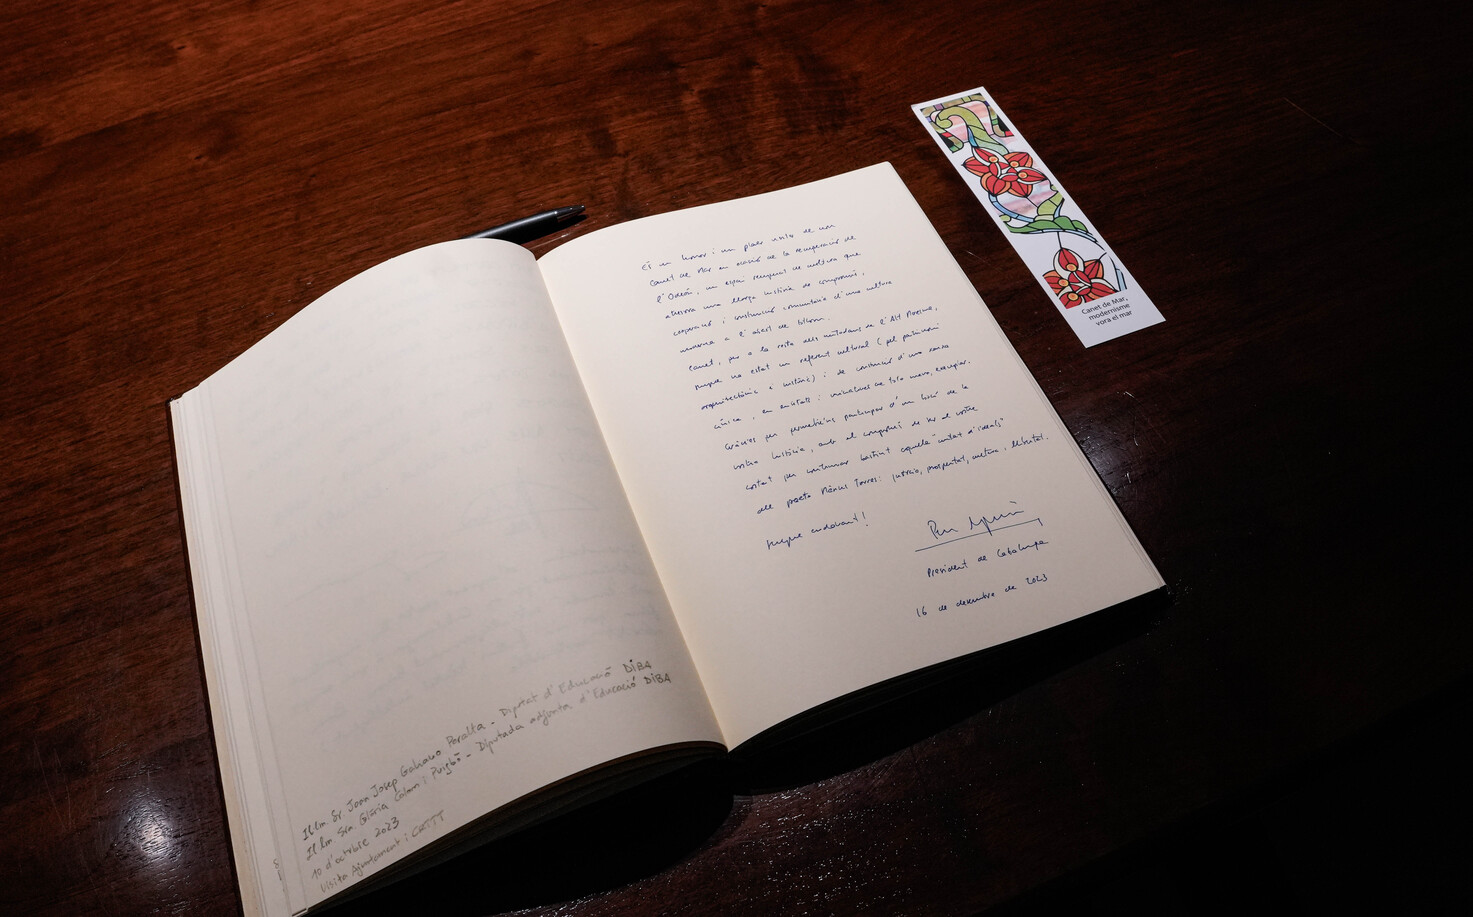 Il·lm Sr. Joan Josep Galiano Peralta - Diputat d'Educació DiBA
Il·lm Sra. Glòria Colom i Puigbó - Diputada adjunta d'Educació DiBA
10 d'octubre 2023
Visita Ajuntament i CRTTT
És un honor i un plaer visitar de nou
Canet de Mar en ocasió de la recuperació de
l'Odeón, un espai de cultura que
atresora una llarga història de compromís,
cooperació i construcció comunitària d'una cultura
moderna a l'abast de tothom.
Canet, per a la resta dels ciutadans de l'Alt Maresme,
sempre ha estat un referent cultural (pel patrimoni
arquitectònic i històric) i de construir d'una xarxa
cívica, en entitats i de tota mena, exemplar.
Gràcies per permetre'ns participar d'un bocí de la
vostra història, amb el compromís de ser al vostre
costat per continuar bastint aquella "unitat d'ideals"
del poeta Màrius Torres: justícia, prosperitat, cultura, llibertat.
Sempre endavant!
President de Catalunya
16 de desembre de 2023
Canet de Mar,
modernisme
vora el mar